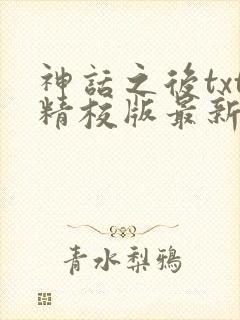 神話之後txt
精校版最新
青水梨鴉